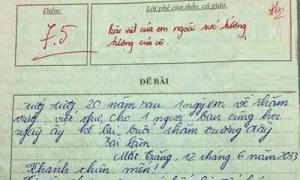 Điểm:
Lời phê của thầy, cô giáo
7.5
Bài viết của em ngoài sức tưởng
tượng của cô.
ĐỀ BÀI
tượng 20 năm sau 1 ngày em về thăm
viết thư cho 1 người bạn cùng học
ngày ấy kể lại buổi thăm trường đầy
Bài làm
12 tháng 6 năm 2033
Khanh thân mến!